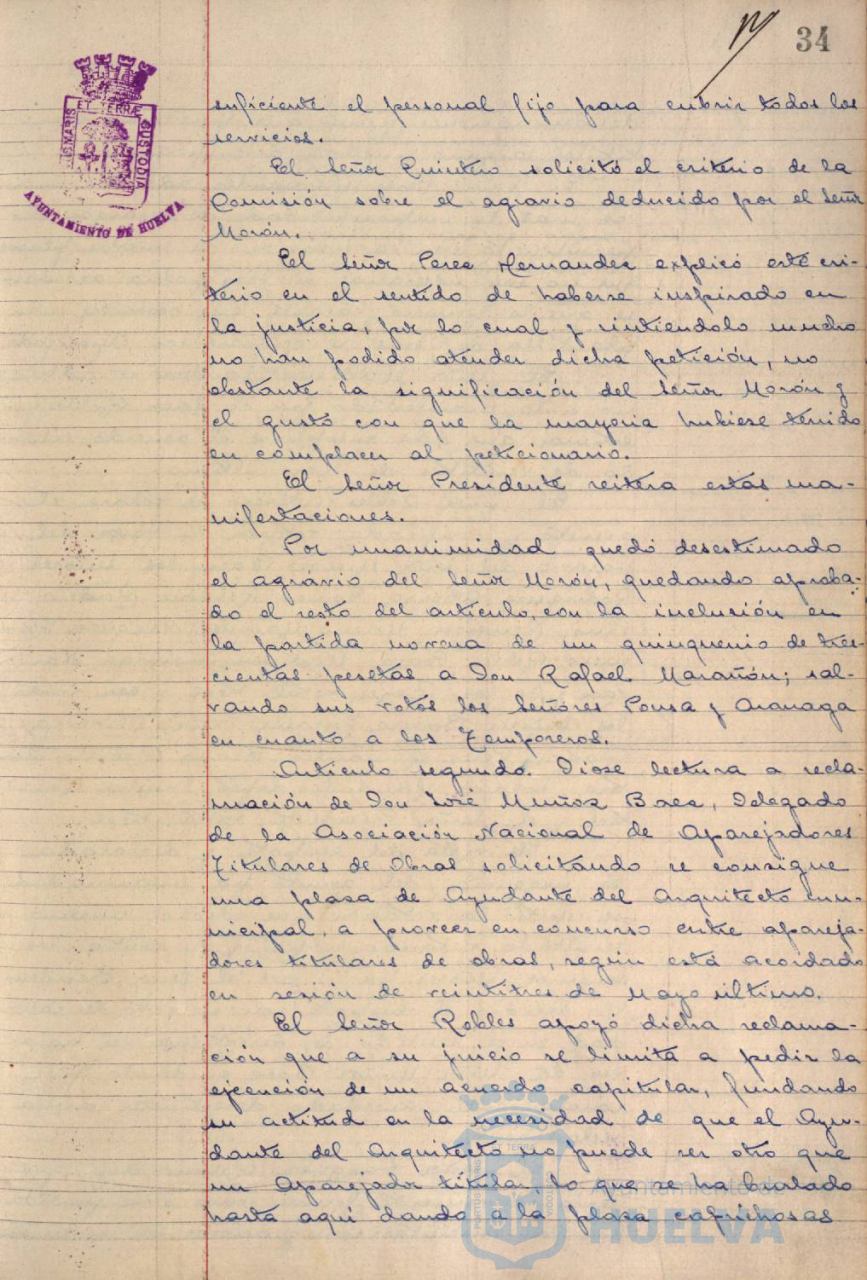 34
suficiente el personal fijo para cubrir todos los
servicios.
El Señor Quintero solicitó el criterio de la
Comisión sobre el agravio deducido por el Señor
Morón.
El Señor Perez Hernandez explicó este cri-
terio en el sentido de haberse inspirado en
la justicia, por lo cual y sintiendolo mucho
no han podido atender dicha petición, no
obstante la significación del Señor Morón y
el gusto con que la mayoria hubiese tenido
en complacer al peticionario.
El Señor Presidente reitera estas ma-
nifestaciones.
Por unanimidad quedó desestimado
el agrávio del Señor Morón, quedando aproba-
do el resto del artículo, con la inclusión en
la partida novena de un quinquenio de tres-
cientas pesetas a Don Rafael Marañón; sal-
vando sus votos los Señores Ponsa y Aranaga
en cuanto a los Temporeros.
Artículo segundo. Diose lectura a recla-
mación de Don José Muñoz Baea, Delegado
de la Asociación Nacional de Aparejadores
Titulares de Obras solicitando se consigne
una plaza de Ayudante del Arquitecto mu-
nicipal, a proveer en concurso entre apareja-
dores titulares de obras, según está acordado
en sesión de veintitres de Mayo último.
El Señor Robles apoyó dicha reclama-
ción que a su juicio se limita a pedir la
ejecución de un acuerdo capitular, fundando
su actitud en la necesidad de que el Ayu-
dante del Arquitecto no puede ser otro que
un Aparejador titular, lo que se ha burlado
hasta aquí dando a la plaza caprichosas
ET TERRÆ CUSTODIA
AYUNTAMIENTO DE HUELVA
Ayuntamiento de
HUELVA